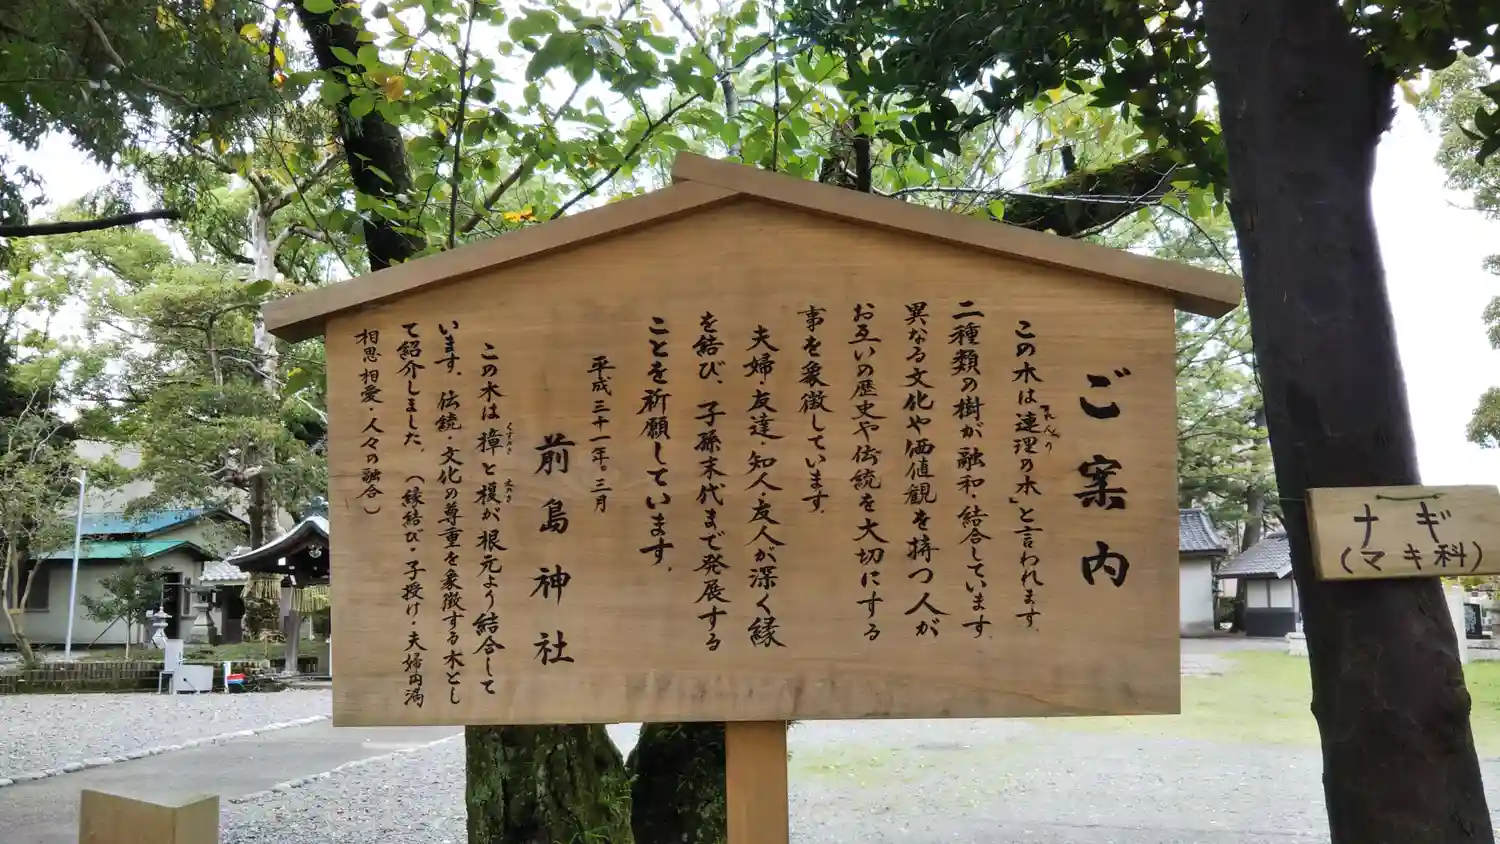 ご案内
この木は「連理の木」と言われます。
れんり
二種類の樹が融和・結合しています。
異なる文化や価値観を持つ人が
お互いの歴史や伝統を大切にする
事を象徴しています。
夫婦・友達・知人・友人が深く縁
を結び、子孫末代まで発展する
ことを祈願しています。
平成三十一年。三月
前島神社
この木は樟と榎が根元より結合して
くすのき
えのき
います。伝統・文化の尊重を象徴する木とし
て紹介しました。(縁結び・子授け・夫婦円満
相思相愛・人々の融合)
ナギ
(マキ科)